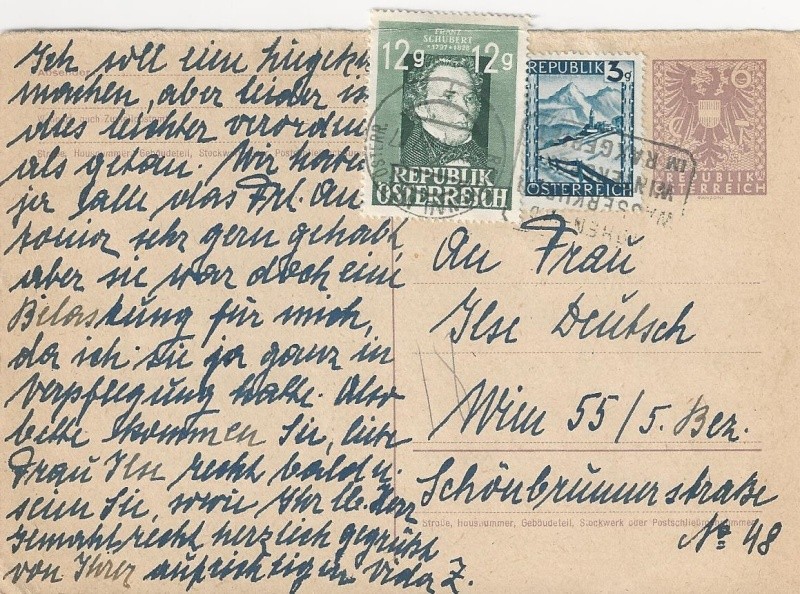 Ich soll eine Liegekur
machen, aber leider ist
alles leichter verordnet
als getan. Wir haben
ja alle das Frl. An
tonia sehr gern gehabt
aber sie war doch eine
Belastung für mich,
da ich sie ja ganz in
Verpflegung hatte. Also
bitte kommen Sie, liebe
Frau Ilse recht bald u.
seien Sie, sowie Ihr lb. Herr
Gemahl recht herzlich gegrüßt
von Ihrer aufrichtigen Vida Z.
Absender
Straße, Hausnummer, Gebäudeteil, Stockwerk
12g 12g
FRANZ
SCHUBERT
1797 1828
REPUBLIK
ÖSTERREICH
REPUBLIK 3g
ÖSTERREICH
REPUBLIK
ÖSTERREICH
An Frau
Ilse Deutsch
Wien 55/5. Bez.
Schönbrunnerstraße
Straße, Hausnummer, Gebäudeteil, Stockwerk oder Postschließfachnummer
No 48